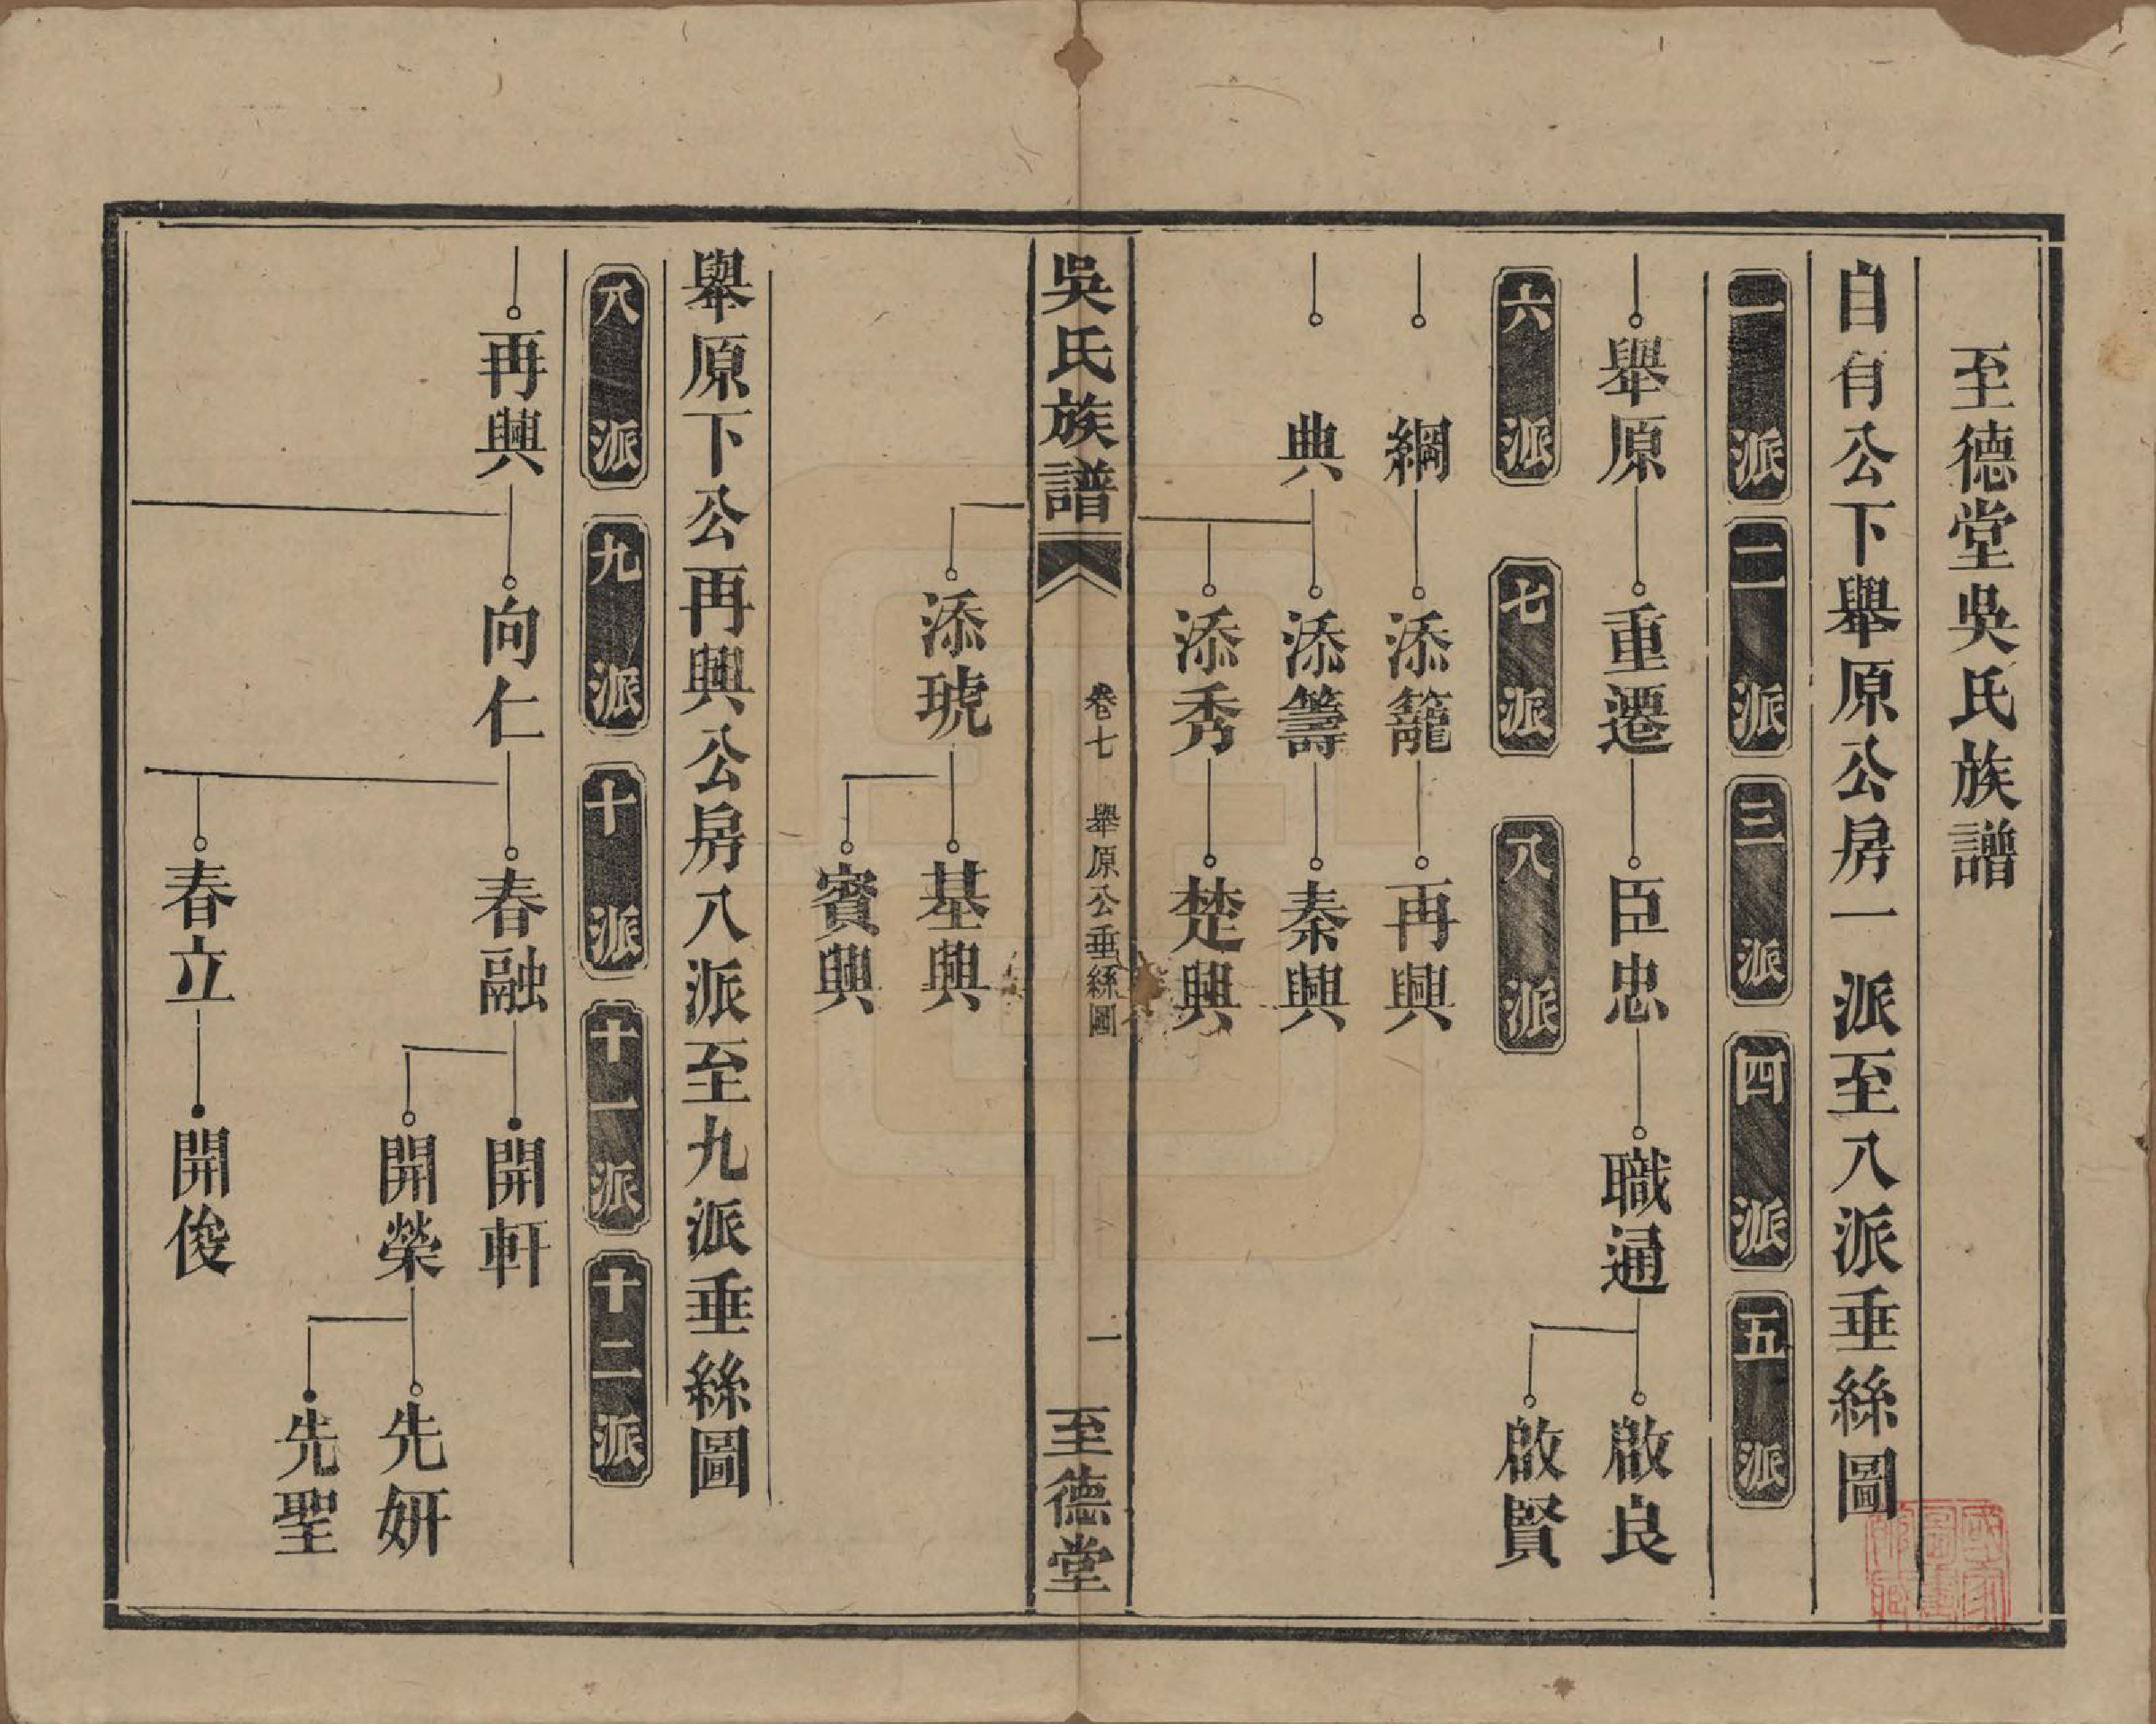 至德堂吳氏族譜
自有公下舉原公房一派至八派垂絲圖
一派 二派 三派 四派 五派
舉原 重遷 臣忠 職通 啟良
啟賢
六派 七派 八派
綱 添籠 再興
典 添籌 秦興
添秀 楚興
吳氏族譜 卷七 舉原公垂絲圖 一 至德堂
添琥 基興
賓興
舉原下公再興公房八派至九派垂絲圖
八派 九派 十派 十一派 十二派
再興 向仁 春融 開軒
開榮 先妍
先聖
春立 開俊